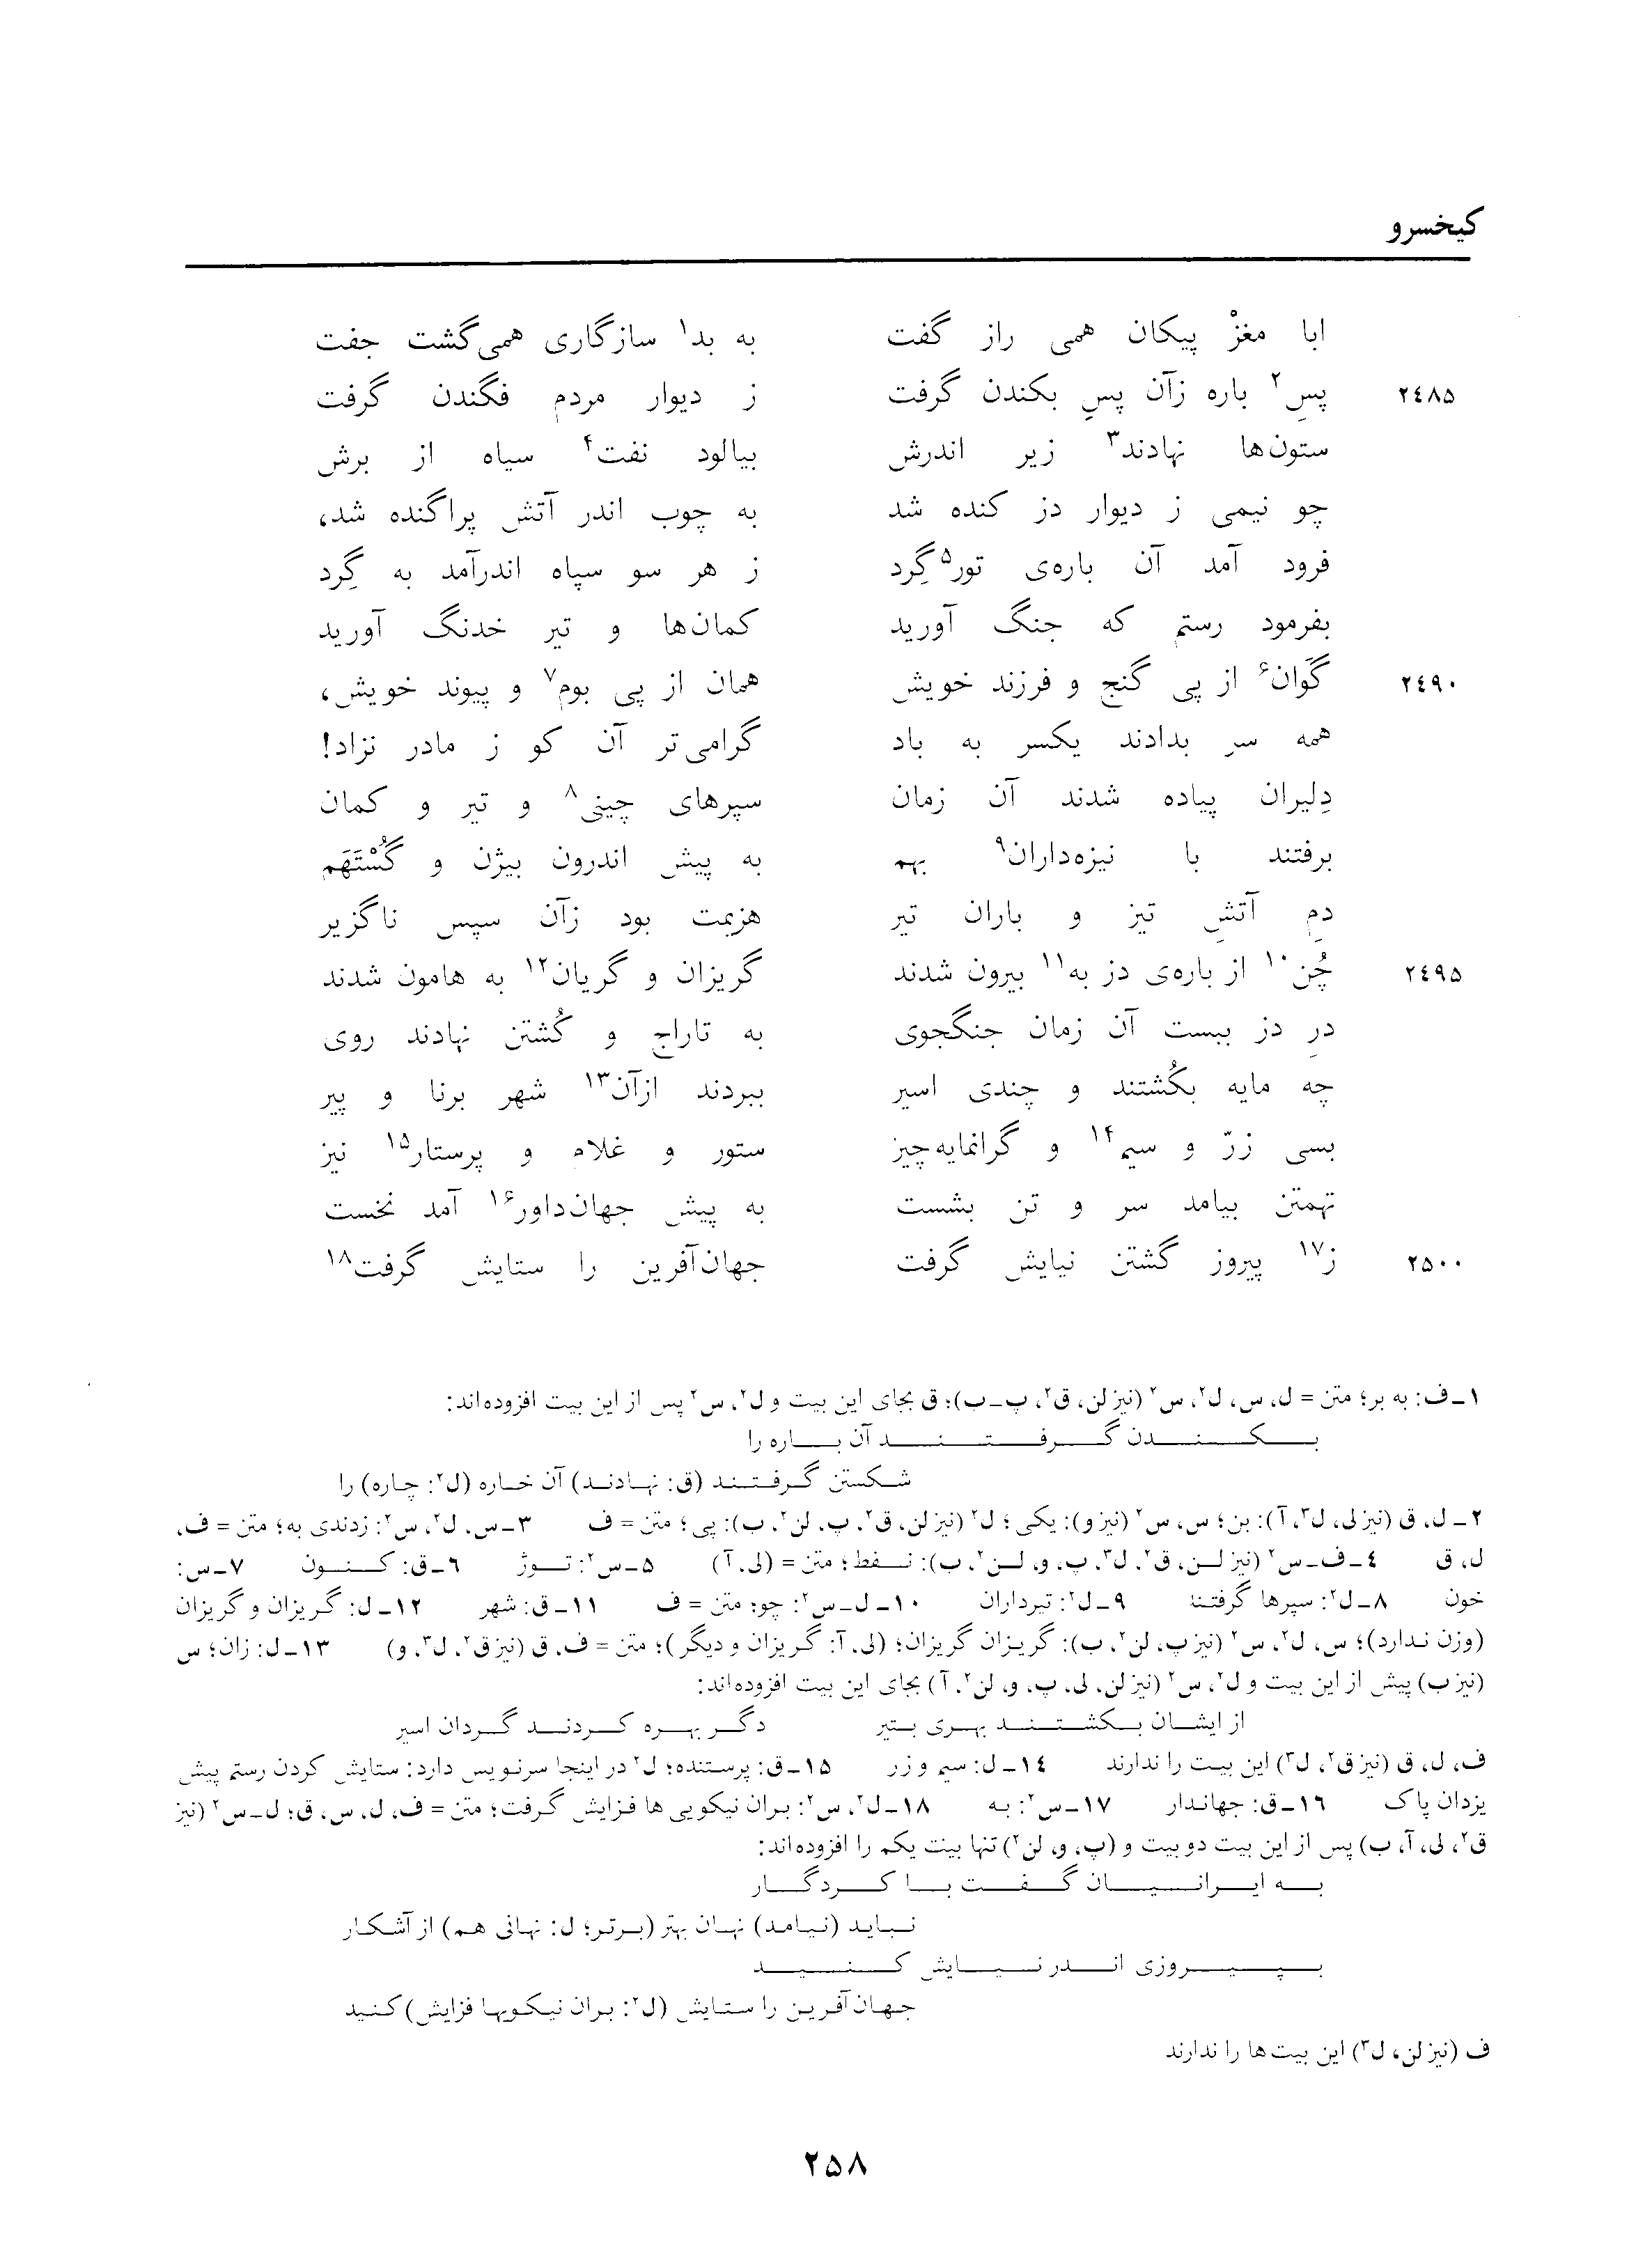 کیخسرو
ابا مغزْ پیکان همی راز گفت به بد۱ سازگاری همی‌گشت جفت
۲۴۸۵ پسِ۲ باره زآن پس بکندن گرفت ز دیوار مردم فگندن گرفت
ستون‌ها نهادند۳ زیر اندرش بیالود نفت۴ سیاه از برش
چو نیمی ز دیوار دز کنده شد به چوب اندر آتش پراگنده شد،
فرود آمد آن باره‌ی تور۵گِرد ز هر سو سپاه اندرآمد به گِرد
بفرمود رستم که جنگ آورید کمان‌ها و تیر خدنگ آورید
۲۴۹۰ گَوان۶ از پی گنج و فرزند خویش همان از پی بوم۷ و پیوند خویش،
همه سر بدادند یکسر به باد گرامی‌تر آن کو ز مادر نزاد!
دِلیران پیاده شدند آن زمان سپرهای چینی۸ و تیر و کمان
برفتند با نیزه‌داران۹ بهم به پیش اندرون بیژن و گُسْتَهَم
دمِ آتشِ تیز و باران تیر هزیمت بود زآن سپس ناگزیر
۲۴۹۵ چُن۱۰ از باره‌ی دز به۱۱ بیرون شدند گریزان و گریان۱۲ به هامون شدند
درِ دز ببست آن زمان جنگجوی به تاراج و کُشتن نهادند روی
چه مایه بکُشتند و چندی اسیر ببردند ازآن۱۳ شهر برنا و پیر
بسی زرّ و سیم۱۴ و گرانمایه‌چیز ستور و غلام و پرستار۱۵ نیز
تهمتن بیامد سر و تن بشست به پیش جهان‌داور۱۶ آمد نخست
۲۵۰۰ ز۱۷ پیروز گشتن نیایش گرفت جهان‌آفرین را ستایش گرفت۱۸
۱ـ ف: به بر؛ متن = ل، س، ل۲، س۲ (نیز لن، ق۲، پ ـ ب)؛ ق بجای این بیت و ل۲، س۲ پس از این بیت افزوده‌اند:
بکندن گرفتند آن باره را
شکستن گرفتند (ق: نهادند) آن خاره (ل۲: چاره) را
۲ـ ل، ق (نیز لی، ل۳، آ): بن؛ س، س۲ (نیز و): یکی؛ ل۲ (نیز لن، ق۲، پ، لن۲، ب): پی؛ متن = ف ۳ـ س، ل۲، س۲: زدندی به؛ متن = ف،
ل، ق ۴ـ ف ـ س۲ (نیز لن، ق۲، ل۳، پ، و، لن۲، ب): نفط؛ متن = (لی، آ) ۵ـ س۲: توژ ۶ـ ق: کنون ۷ـ س:
خون ۸ـ ل۲: سپرها گرفتند ۹ـ ل۲: تیرداران ۱۰ـ ل ـ س۲: چو؛ متن = ف ۱۱ـ ق: شهر ۱۲ـ ل: گریزان و گریزان
(وزن ندارد)؛ س، ل۲، س۲ (نیز پ، لن۲، ب): گریزان گریزان؛ (لی، آ: گریزان و دیگر)؛ متن = ف، ق (نیز ق۲، ل۳، و) ۱۳ـ ل: زان؛ س
(نیز ب) پیش از این بیت و ل۲، س۲ (نیز لن، لی، پ، و، لن۲، آ) بجای این بیت افزوده‌اند:
از ایشان بکشتند بهری بتیر دگر بهره کردند گردان اسیر
ف، ل، ق (نیز ق۲، ل۳) این بیت را ندارند ۱۴ـ ل: سیم و زر ۱۵ـ ق: پرستنده؛ ل۲ در اینجا سرنویس دارد: ستایش کردن رستم پیش
یزدان پاک ۱۶ـ ق: جهاندار ۱۷ـ س۲: به ۱۸ـ ل۲، س۲: بران نیکویی ها فزایش گرفت؛ متن = ف، ل، س، ق؛ ل ـ س۲ (نیز
ق۲، لی، آ، ب) پس از این بیت دو بیت و (پ، و، لن۲) تنها بیت یکم را افزوده‌اند:
به ایرانیان گفت با کردگار
نباید (نیامد) نهان بهتر (برتر؛ ل: نهانی هم) از آشکار
بپیروزی اندر نیایش کنید
جهان‌آفرین را ستایش (ل۲: بران نیکویها فزایش) کنید
ف (نیز لن، ل۳) این بیت‌ها را ندارند
۲۵۸